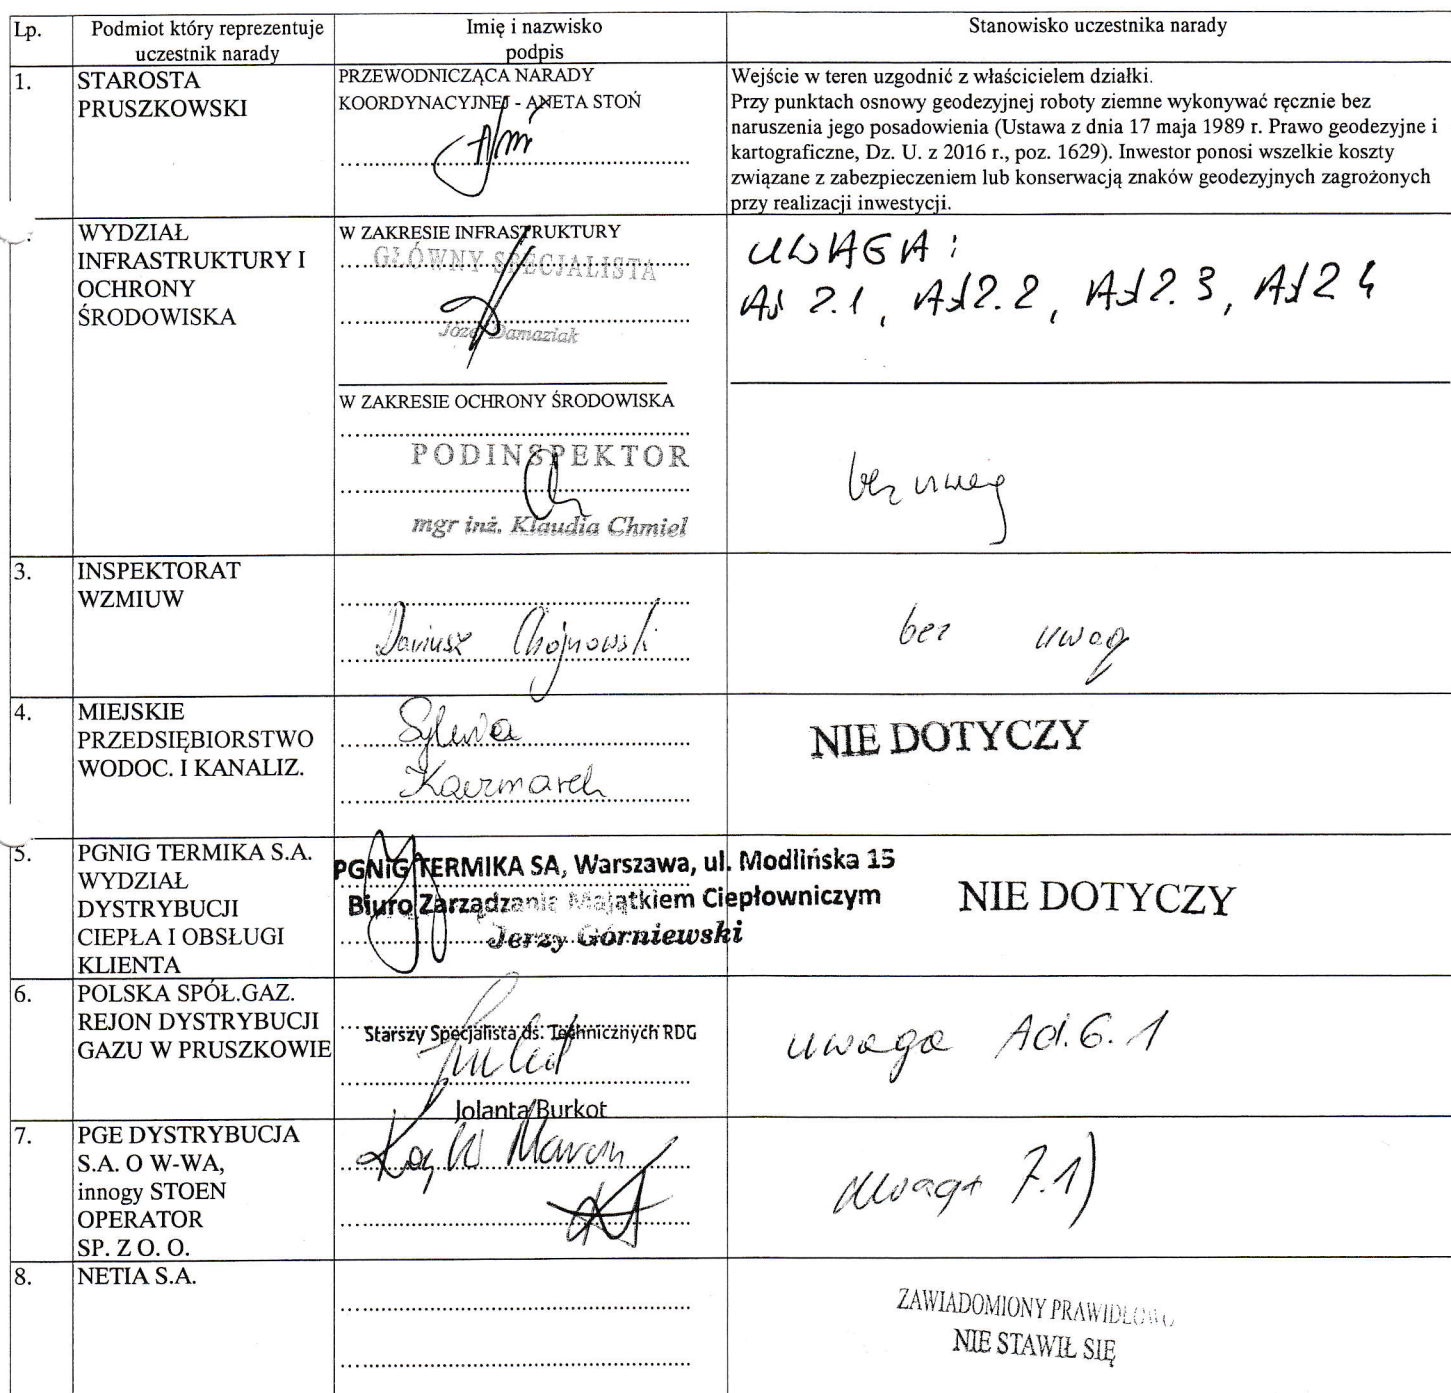 Lp.
Podmiot który reprezentuje
uczestnik narady
Imię i nazwisko
podpis
Stanowisko uczestnika narady
1.
STAROSTA
PRUSZKOWSKI
PRZEWODNICZĄCA NARADY
KOORDYNACYJNEJ - ANETA STOŃ
Wejście w teren uzgodnić z właścicielem działki.
Przy punktach osnowy geodezyjnej roboty ziemne wykonywać ręcznie bez
naruszenia jego posadowienia (Ustawa z dnia 17 maja 1989 r. Prawo geodezyjne i
kartograficzne, Dz. U. z 2016 r., poz. 1629). Inwestor ponosi wszelkie koszty
związane z zabezpieczeniem lub konserwacją znaków geodezyjnych zagrożonych
przy realizacji inwestycji.
WYDZIAŁ
INFRASTRUKTURY I
OCHRONY
ŚRODOWISKA
W ZAKRESIE INFRASTRUKTURY
GŁÓWNY SPECJALISTA
Józef Damaziak
UWAGA:
Ad 2.1, Ad 2.2, Ad 2.3, Ad 2.4
W ZAKRESIE OCHRONY ŚRODOWISKA
PODINSPEKTOR
mgr inż. Klaudia Chmiel
bez uwag
3.
INSPEKTORAT
WZMIUW
Dariusz Chojnowski
bez uwag
4.
MIEJSKIE
PRZEDSIĘBIORSTWO
WODOC. I KANALIZ.
Sylwia
Kaczmarek
NIE DOTYCZY
5.
PGNIG TERMIKA S.A.
WYDZIAŁ
DYSTRYBUCJI
CIEPŁA I OBSŁUGI
KLIENTA
PGNiG TERMIKA SA, Warszawa, ul. Modlińska 15
Biuro Zarządzania Majątkiem Ciepłowniczym
Jerzy Górniewski
NIE DOTYCZY
6.
POLSKA SPÓŁ.GAZ.
REJON DYSTRYBUCJI
GAZU W PRUSZKOWIE
Starszy Specjalista ds. Technicznych RDG
Jolanta Burkot
uwaga Ad.6.1
7.
PGE DYSTRYBUCJA
S.A. O W-WA,
innogy STOEN
OPERATOR
SP. Z O. O.
Marcin
uwaga 7.1)
8.
NETIA S.A.
ZAWIADOMIONY PRAWIDŁOWO
NIE STAWIŁ SIĘ